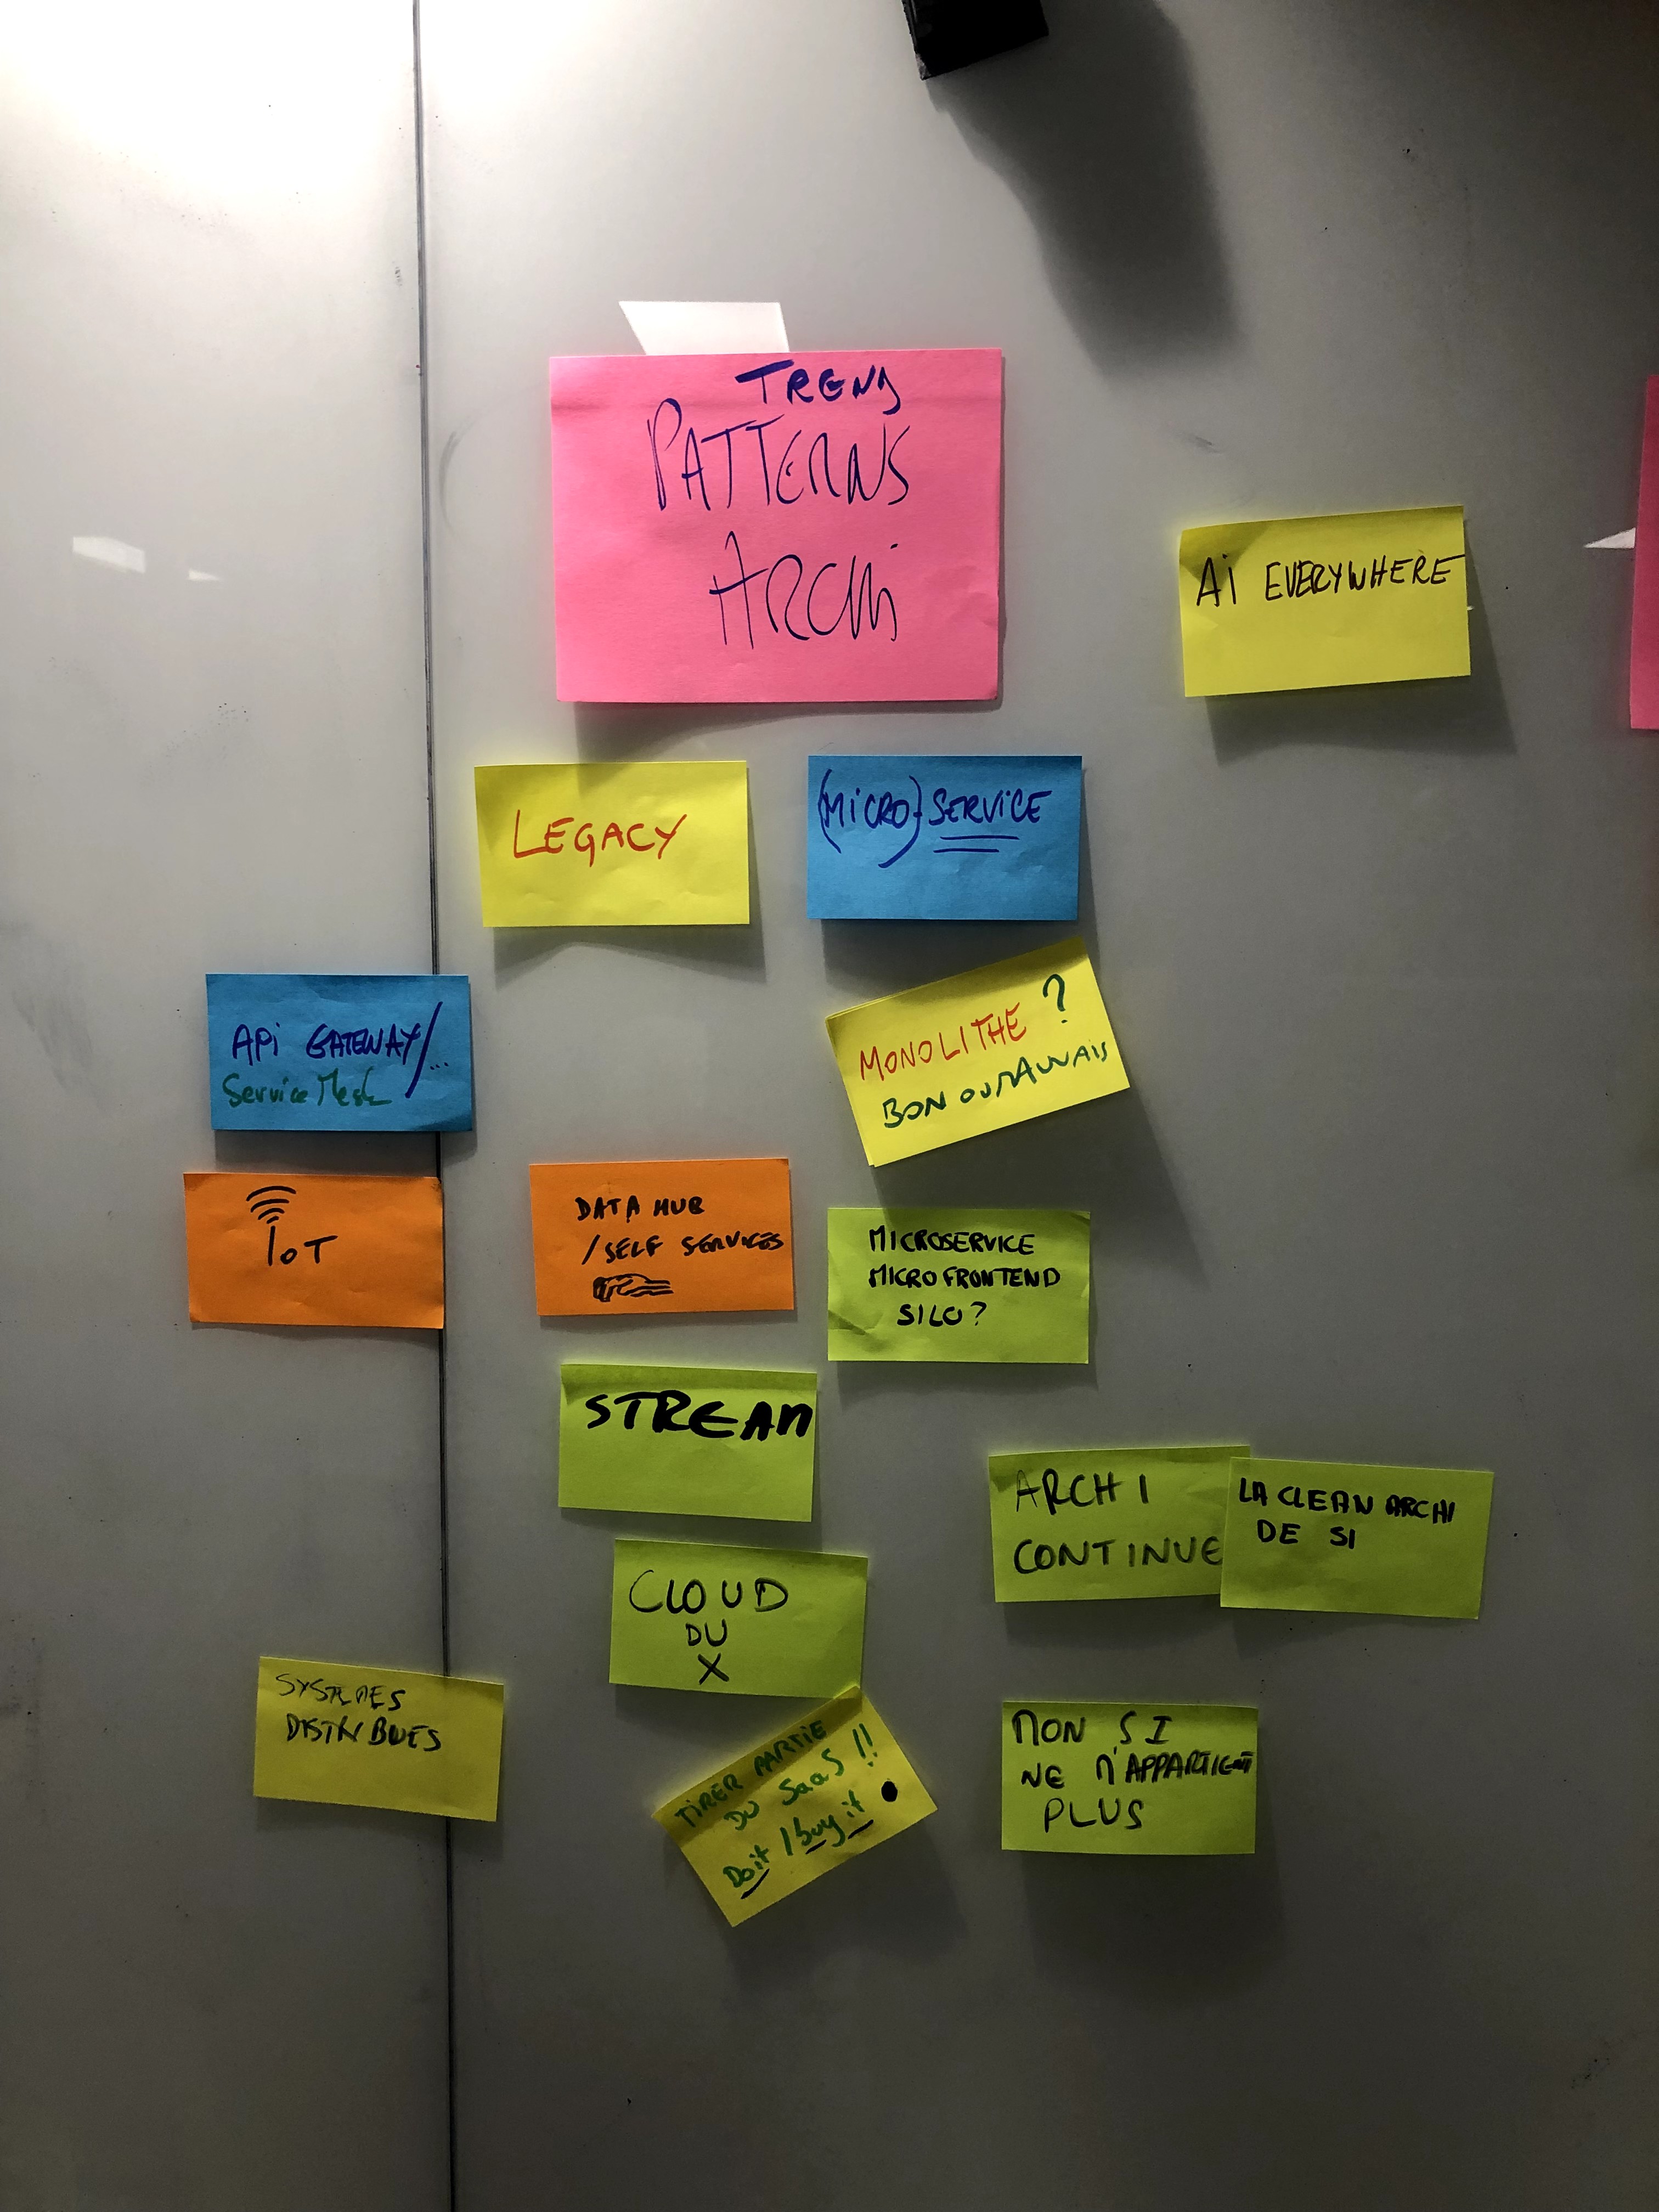 TREND
PATTERNS
ARCHI
AI EVERYWHERE
LEGACY
(MICRO) SERVICE
API GATEWAY/...
Service Mesh
MONOLITHE ?
BON OU MAUVAIS
IOT
DATA HUB
/SELF SERVICES
MICROSERVICE
MICROFRONTEND
SILO?
STREAM
ARCHI
CONTINUE
LA CLEAN ARCHI
DE SI
CLOUD
DU
X
SYSTEMES
DISTRIBUES
TIRER PARTIE
DU SaaS !!
Do it / buy it
MON SI
NE M'APPARTIENT
PLUS